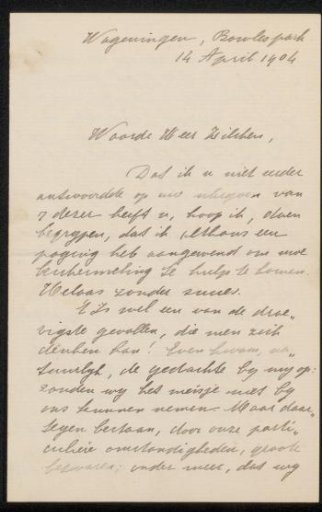 Wageningen, Bowlespark
14 April 1904
Waarde Heer Zilcken,
Dat ik u niet eerder
antwoordde op uw schrijven van
7 dezer heeft u, hoop ik, doen
begrypen, dat ik althans een
poging heb aangewend om uwe
te hulp te komen.
Helaas zonder succes.
't Is wel een van de droe-
vigste gevallen, die men zich
denken kan! Even kwam, na-
tuurlyk, de gedachte by my op:
zouden wy het meisje niet by
ons kunnen nemen. Maar daar-
tegen bestaan, door onze parti-
culiere omstandigheden, groote
bezwaren; onder meer, dat wy